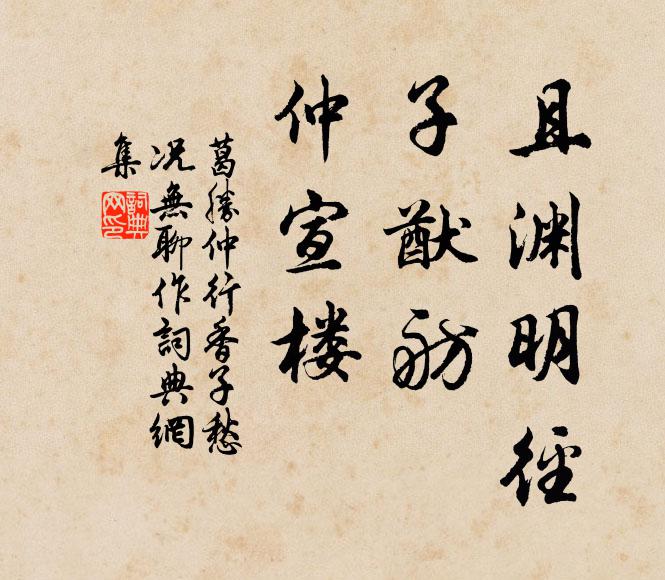 且渊明径
子猷舫
仲宣楼
葛勝仲行香子愁
况無聊作詞典網
集
詞典
网印